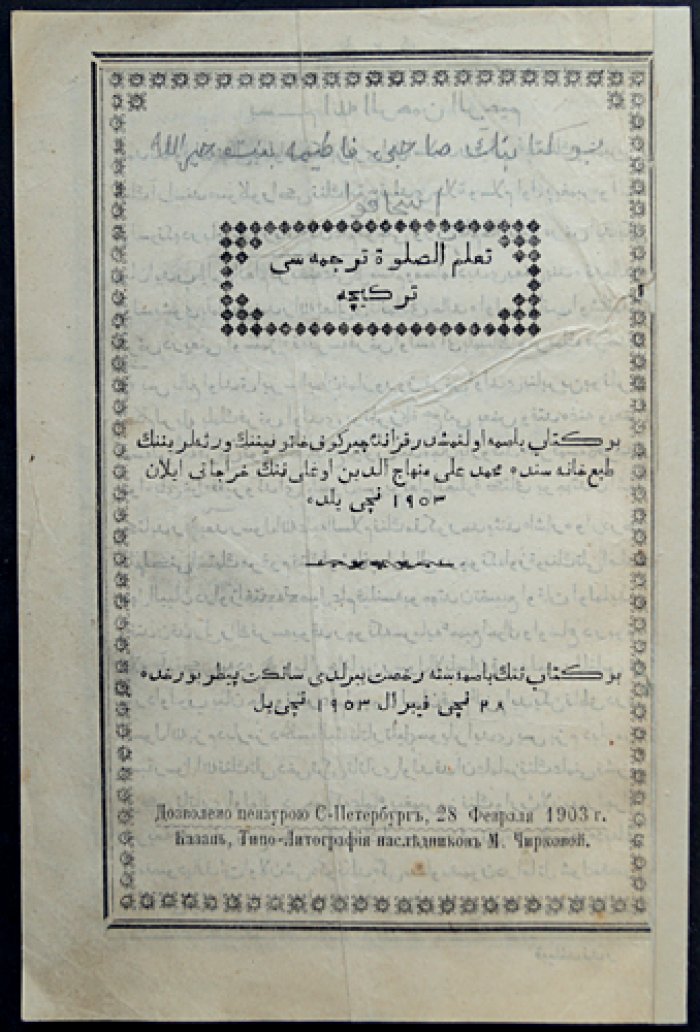 بو كتاب ننك صاحبى فاطيمه بنت خيرالله
تعلم الصلوة ترجمه سى
تركيچه
بو كتاب باصمه اولنمشدر قزانده چيركوف خاتونيننك ورثه لرىننك
طبع خانه سنده محمد على منهاج الدين اوغلى ننك خراجاتى ايلان
١٩٠٣ نچى يلده
بو كتاب ننك باصمه سينه رخصت بيرلدى سانكت پيطربورغده
٢٨ نچى فيبرال ١٩٠٣ نچى يل
Дозволено цензурою С-Петербургъ, 28 Февраля 1903 г.
Казань, Типо-Литографія наслѣдниковъ М. Чирковой.